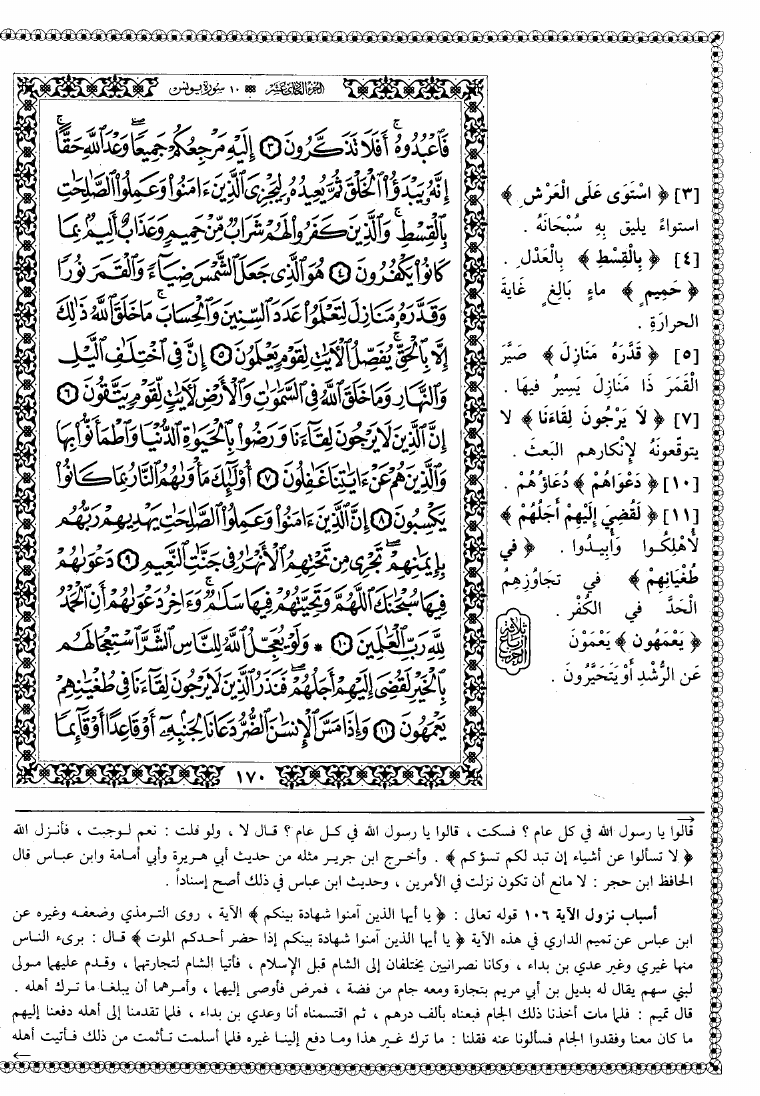 الجزء الحادي عشر ١٠ سورة يونس
فَٱعْبُدُوهُ أَفَلَا تَذَكَّرُونَ ٣ إِلَيْهِ مَرْجِعُكُمْ جَمِيعًا وَعْدَ ٱللَّهِ حَقًّا
إِنَّهُ يَبْدَؤُا۟ ٱلْخَلْقَ ثُمَّ يُعِيدُهُ لِيَجْزِىَ ٱلَّذِينَ ءَامَنُوا۟ وَعَمِلُوا۟ ٱلصَّٰلِحَٰتِ
بِٱلْقِسْطِ وَٱلَّذِينَ كَفَرُوا۟ لَهُمْ شَرَابٌ مِّنْ حَمِيمٍ وَعَذَابٌ أَلِيمٌ بِمَا
كَانُوا۟ يَكْفُرُونَ ٤ هُوَ ٱلَّذِى جَعَلَ ٱلشَّمْسَ ضِيَآءً وَٱلْقَمَرَ نُورًا
وَقَدَّرَهُ مَنَازِلَ لِتَعْلَمُوا۟ عَدَدَ ٱلسِّنِينَ وَٱلْحِسَابَ مَا خَلَقَ ٱللَّهُ ذَٰلِكَ
إِلَّا بِٱلْحَقِّ يُفَصِّلُ ٱلْءَايَٰتِ لِقَوْمٍ يَعْلَمُونَ ٥ إِنَّ فِى ٱخْتِلَٰفِ ٱلَّيْلِ
وَٱلنَّهَارِ وَمَا خَلَقَ ٱللَّهُ فِى ٱلسَّمَٰوَٰتِ وَٱلْأَرْضِ لَءَايَٰتٍ لِّقَوْمٍ يَتَّقُونَ ٦
إِنَّ ٱلَّذِينَ لَا يَرْجُونَ لِقَآءَنَا وَرَضُوا۟ بِٱلْحَيَوٰةِ ٱلدُّنْيَا وَٱطْمَأَنُّوا۟ بِهَا
وَٱلَّذِينَ هُمْ عَنْ ءَايَٰتِنَا غَٰفِلُونَ ٧ أُو۟لَٰٓئِكَ مَأْوَىٰهُمُ ٱلنَّارُ بِمَا كَانُوا۟
يَكْسِبُونَ ٨ إِنَّ ٱلَّذِينَ ءَامَنُوا۟ وَعَمِلُوا۟ ٱلصَّٰلِحَٰتِ يَهْدِيهِمْ رَبُّهُم
بِإِيمَٰنِهِمْ تَجْرِى مِن تَحْتِهِمُ ٱلْأَنْهَٰرُ فِى جَنَّٰتِ ٱلنَّعِيمِ ٩ دَعْوَىٰهُمْ
فِيهَا سُبْحَٰنَكَ ٱللَّهُمَّ وَتَحِيَّتُهُمْ فِيهَا سَلَٰمٌ وَءَاخِرُ دَعْوَىٰهُمْ أَنِ ٱلْحَمْدُ
لِلَّهِ رَبِّ ٱلْعَٰلَمِينَ ١٠ * وَلَوْ يُعَجِّلُ ٱللَّهُ لِلنَّاسِ ٱلشَّرَّ ٱسْتِعْجَالَهُم
بِٱلْخَيْرِ لَقُضِىَ إِلَيْهِمْ أَجَلُهُمْ فَنَذَرُ ٱلَّذِينَ لَا يَرْجُونَ لِقَآءَنَا فِى طُغْيَٰنِهِمْ
يَعْمَهُونَ ١١ وَإِذَا مَسَّ ٱلْإِنسَٰنَ ٱلضُّرُّ دَعَانَا لِجَنۢبِهِۦٓ أَوْ قَاعِدًا أَوْ قَآئِمًا
١٧٠
[٣] ﴿ اسْتَوَى عَلَى الْعَرْشِ ﴾
استواءً يليق بِهِ سُبْحَانَهُ .
[٤] ﴿ بِالْقِسْطِ ﴾ بِالْعَدْلِ .
﴿ حَمِيمٍ ﴾ ماءٍ بَالِغٍ غَايةَ
الحرارةِ .
[٥] ﴿ قَدَّرَهُ مَنَازِلَ ﴾ صَيَّرَ
الْقَمَرَ ذَا مَنَازِلَ يَسِيرُ فيهَا .
[٧] ﴿ لاَ يَرْجُونَ لِقَاءَنَا ﴾ لا
يتوقّعونَهُ لإنْكارهم البَعثَ .
[١٠] ﴿ دَعْوَاهُمْ ﴾ دُعَاؤُهُمْ .
[١١] ﴿ لَقُضِيَ إِلَيْهِمْ أَجَلُهُمْ ﴾
لأُهْلِكُوا وَأُبِيدُوا . ﴿ في
طُغْيَانِهِمْ ﴾ في تجَاوُزِهِمُ
الْحَدَّ في الكُفْرِ .
﴿ يَعْمَهُون ﴾ يَعْمَوْنَ
عَن الرُّشْدِ أَوْ يَتَحَيَّرُونَ .
ثلاثة أرباع الحزب
قالوا يا رسول الله في كل عام ؟ فسكت ، قالوا يا رسول الله في كل عام ؟ قال لا ، ولو قلت : نعم لوجبت ، فأنزل الله
﴿ لا تسألوا عن أشياء إن تبد لكم تسؤكم ﴾ . وأخرج ابن جرير مثله من حديث أبي هريرة وأبي أمامة وابن عباس قال
الحافظ ابن حجر : لا مانع أن تكون نزلت في الأمرين ، وحديث ابن عباس في ذلك أصح إسناداً .
أسباب نزول الآية ١٠٦ قوله تعالى : ﴿ يا أيها الذين آمنوا شهادة بينكم ﴾ الآية ، روى الترمذي وضعفه وغيره عن
ابن عباس عن تميم الداري في هذه الآية ﴿ يا أيها الذين آمنوا شهادة بينكم إذا حضر أحدكم الموت ﴾ قال : برىء الناس
منها غيري وغير عدي بن بداء ، وكانا نصرانيين يختلفان إلى الشام قبل الإسلام ، فأتيا الشام لتجارتهما ، وقدم عليهما مولى
لبني سهم يقال له بديل بن أبي مريم بتجارة ومعه جام من فضة ، فمرض فأوصى إليهما ، وأمرهما أن يبلغا ما ترك أهله .
قال تميم : فلما مات أخذنا ذلك الجام فبعناه بألف درهم ، ثم اقتسمناه أنا وعدي بن بداء ، فلما تقدمنا إلى أهله دفعنا إليهم
ما كان معنا وفقدوا الجام فسألونا عنه فقلنا : ما ترك غير هذا وما دفع إلينا غيره فلما أسلمت تأثمت من ذلك فأتيت أهله